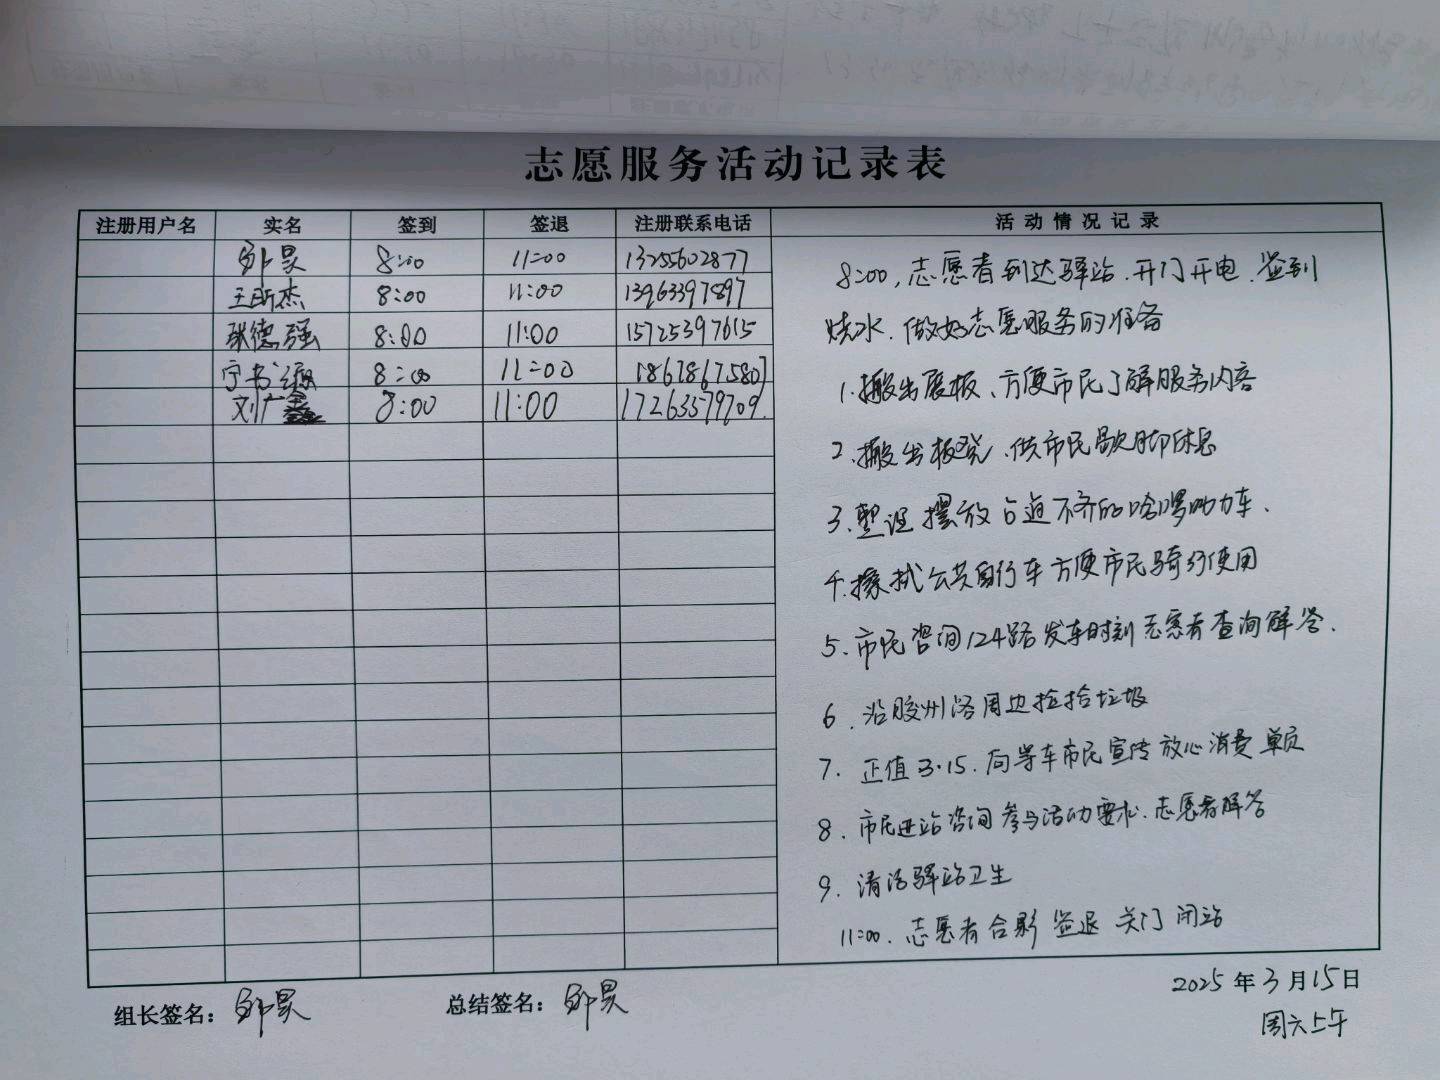 志愿服务活动记录表
注册用户名 实名 签到 签退 注册联系电话 活动情况记录
邹昊 8:00 11:00 13255602877
王昕杰 8:00 11:00 13963397897
张德强 8:00 11:00 15725397615
宁书 8:00 11:00 18678675807
刘广 8:00 11:00 17263579709
8:00,志愿者到达驿站.开门开电.签到
烧水.做好志愿服务的准备
1.搬出展板、方便市民了解服务内容
2.搬出板凳、供市民歇脚休息
3.整理摆放占道不齐的哈啰助力车.
4.擦拭公共自行车方便市民骑行使用
5.市民咨询124路发车时刻志愿者查询解答.
6.沿胶州路周边捡拾垃圾
7.正值3·15.向等车市民宣传放心消费单页
8.市民进站咨询参与活动要求.志愿者解答
9.清洁驿站卫生
11:00.志愿者合影 签退 关门 闭站
组长签名：邹昊 总结签名：邹昊
2025年3月15日
周六上午